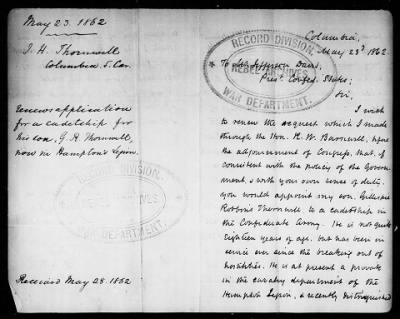 May 23. 1862
J. H. Thornwell
Columbia, S. Car.
renews application
for a cadetship for
his son, G. R. Thornwell,
now in Hampton's Legion.
Received May 28. 1862
RECORD DIVISION.
REBEL ARCHIVES
WAR DEPARTMENT.
Columbia,
May 23d 1862.
RECORD DIVISION.
REBEL ARCHIVES
WAR DEPARTMENT.
To Jefferson Davis,
Pres. Confed. States;
Sir,
I wish
to renew the request which I made
through the Hon. R. W. Barnwell, before
the adjournment of Congress, that, if
consistent with the policy of the Govern-
ment, & with your own sense of duty,
you would appoint my son, Gillespie
Robbins Thornwell, to a cadetship in
the Confederate Army. He is not quite
Eighteen years of age, but has been in
service ever since the breaking out of
hostilities. He is at present a private
in the cavalry department of the
Hampton Legion, & recently distinguished